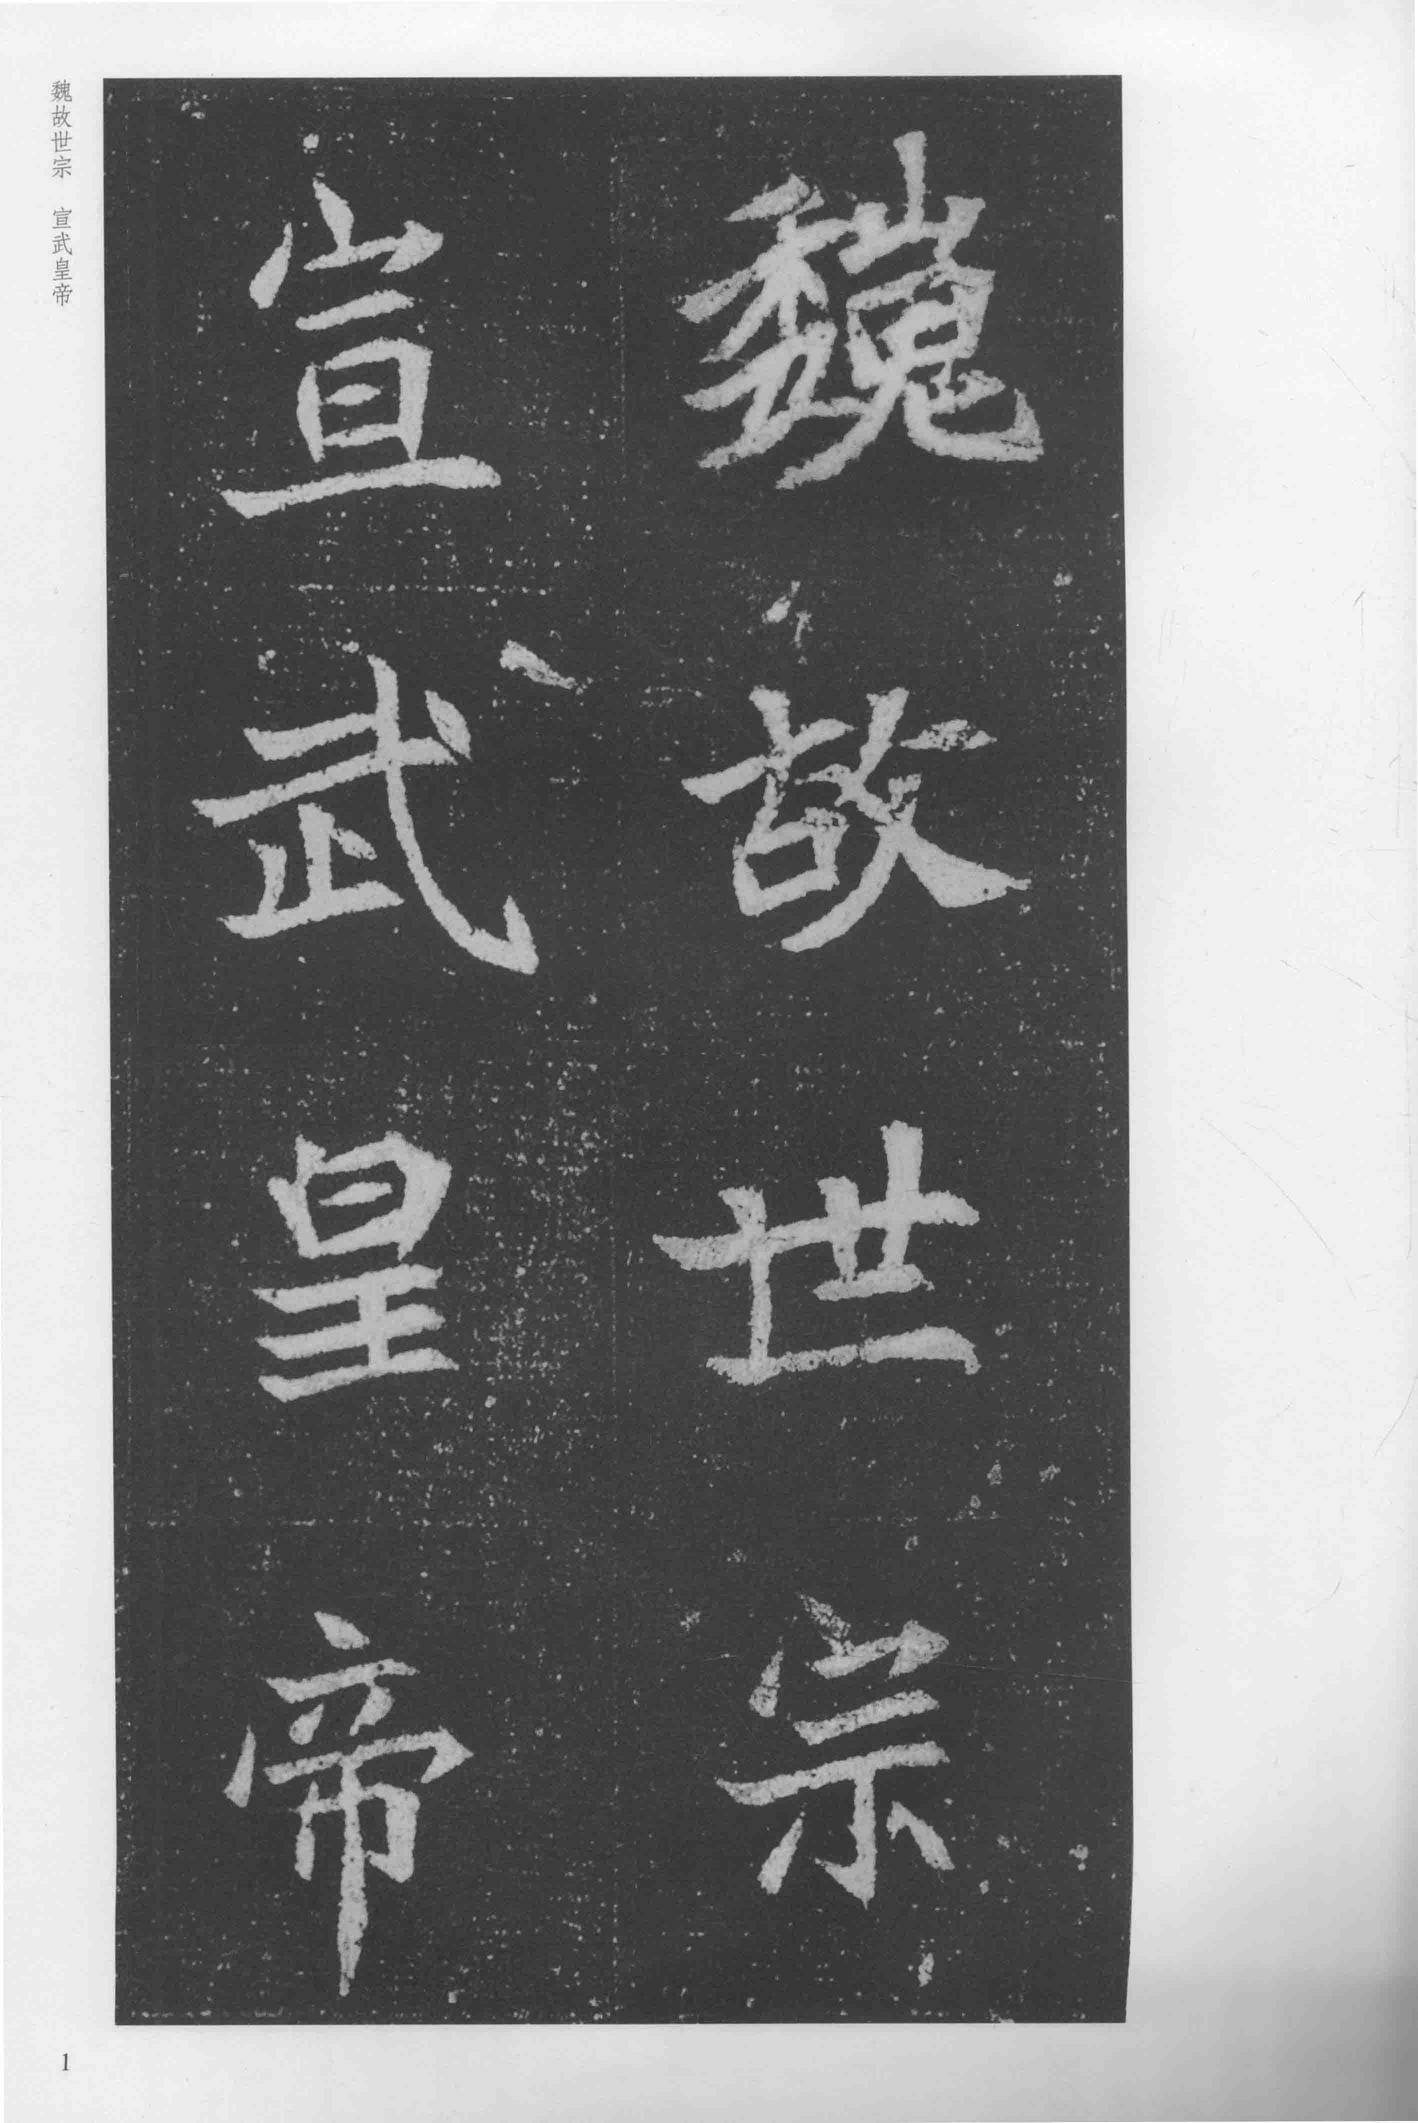 魏故世宗
宣武皇帝
魏故世宗　宣武皇帝
1